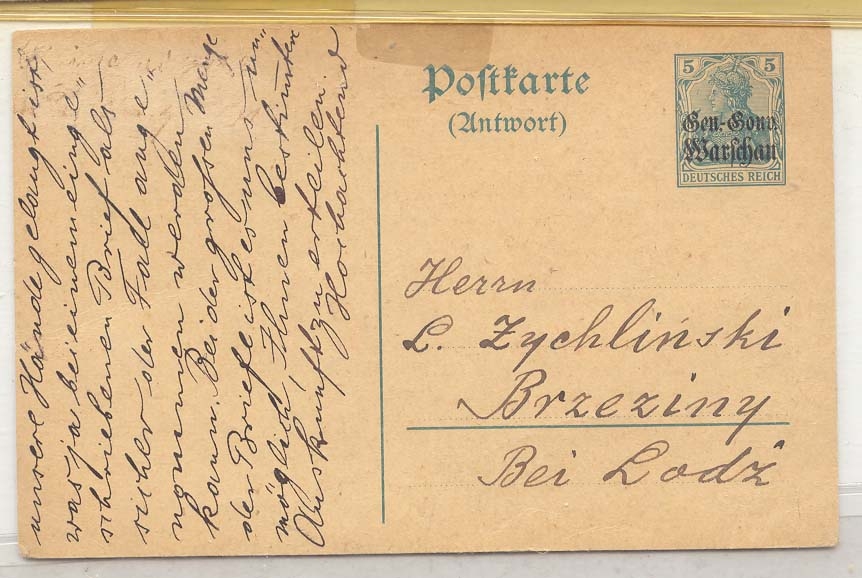 Postkarte
(Antwort)
5 5
Gen.-Gouv.
Warschau
DEUTSCHES REICH
Herrn
L. Zychliński
Brzeziny
Bei Lodź
unsere Hände gelangt ist,
was ja bei einem einge„
schriebenen Brief als
sicher der Fall ange„
nommen werden
kann. Bei der grossen Menge
der Briefe ist es uns un„
möglich, Ihnen bestimten
Auskunft zu erteilen.
Hochachtend